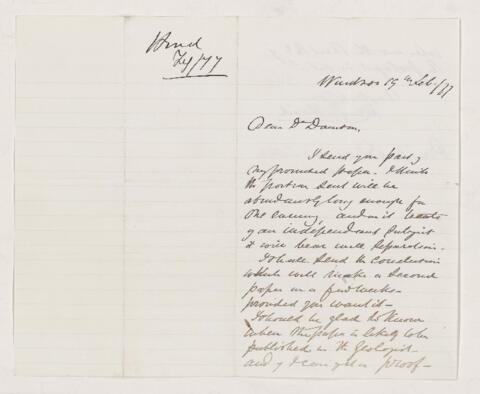 Hind
Feb/77
Windsor 19th Feb/77
Dear Dr Dawson,
I send you part of
my promised paper. I think
the portion sent will be
abundantly long enough for
one evening, and as it treats
of an independent subject
it will bear well separation.
I should send the conclusion
which will make a second
paper in a few weeks
provided you want it—
I should be glad to know
when the paper is likely to be
published in the Geologist
and if I can get a proof—